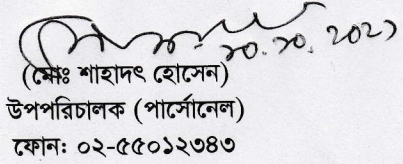 ২০.১০.২০২১
(মোঃ শাহাদৎ হোসেন)
উপপরিচালক (পার্সোনেল)
ফোনঃ ০২-৫৫০১২৩৪৩